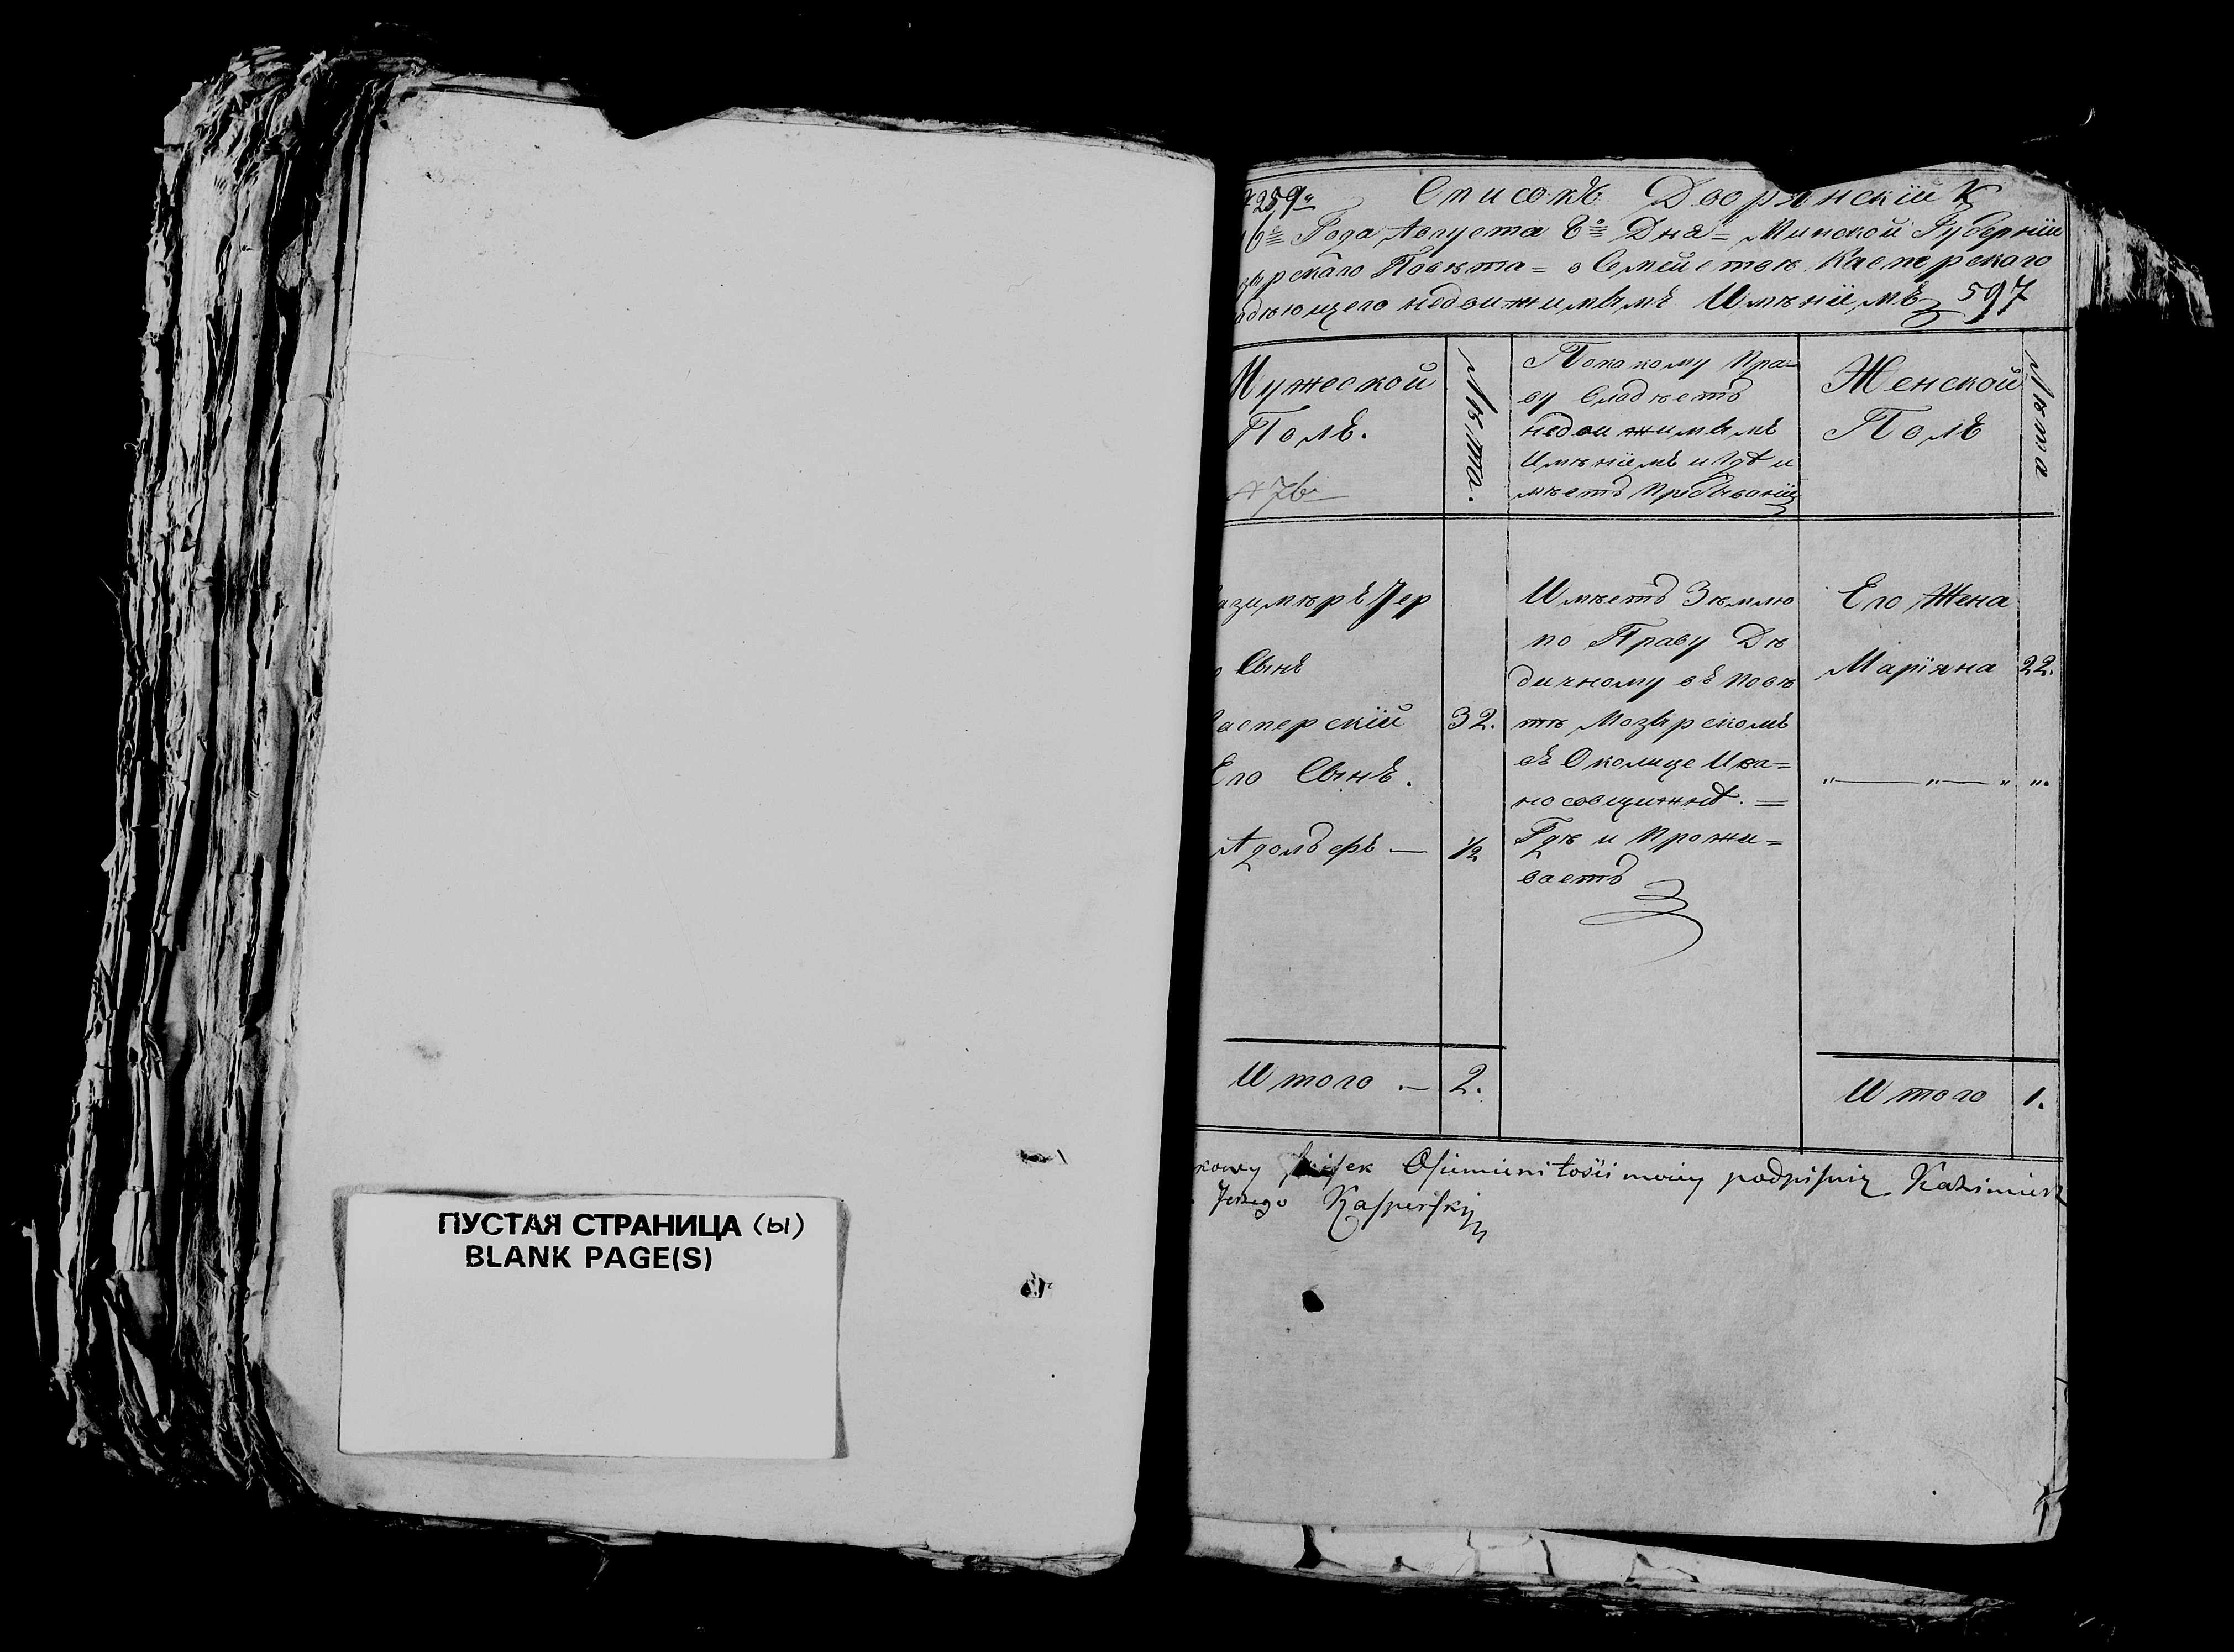 ПУСТАЯ СТРАНИЦА (Ы)
BLANK PAGE(S)
259
Списокъ Дворянскій К
Года Августа 6го Дня = Минской Губерніи
ырскаго Повѣта = о Семействѣ Касперского
адѣющего недвижимымъ Имѣніимъ 597
Мужеской
Полъ.
76
Лѣта.
Покакому Пра=
ву владѣетъ
недвижимымъ
Имѣніимъ и Гдѣ и
мѣетъ Пребываніе
Женской
Полъ
Лѣта
азимѣръ Іер
о Сынъ
Касперскій 32.
Его Сынъ.
Адольфъ — 1/2
Имѣетъ Зѣмлю
по Праву Дѣ
дичному въ повѣ
тѣ Мозырскомъ
въ Околице Ива=
Гдѣ и прожи=
ваетъ
Его Жена
Маріяна 22.
" — " — " ".
Итого . — 2.
Итого 1.
podpisuię Kazimierz
Jerzego Kasperski